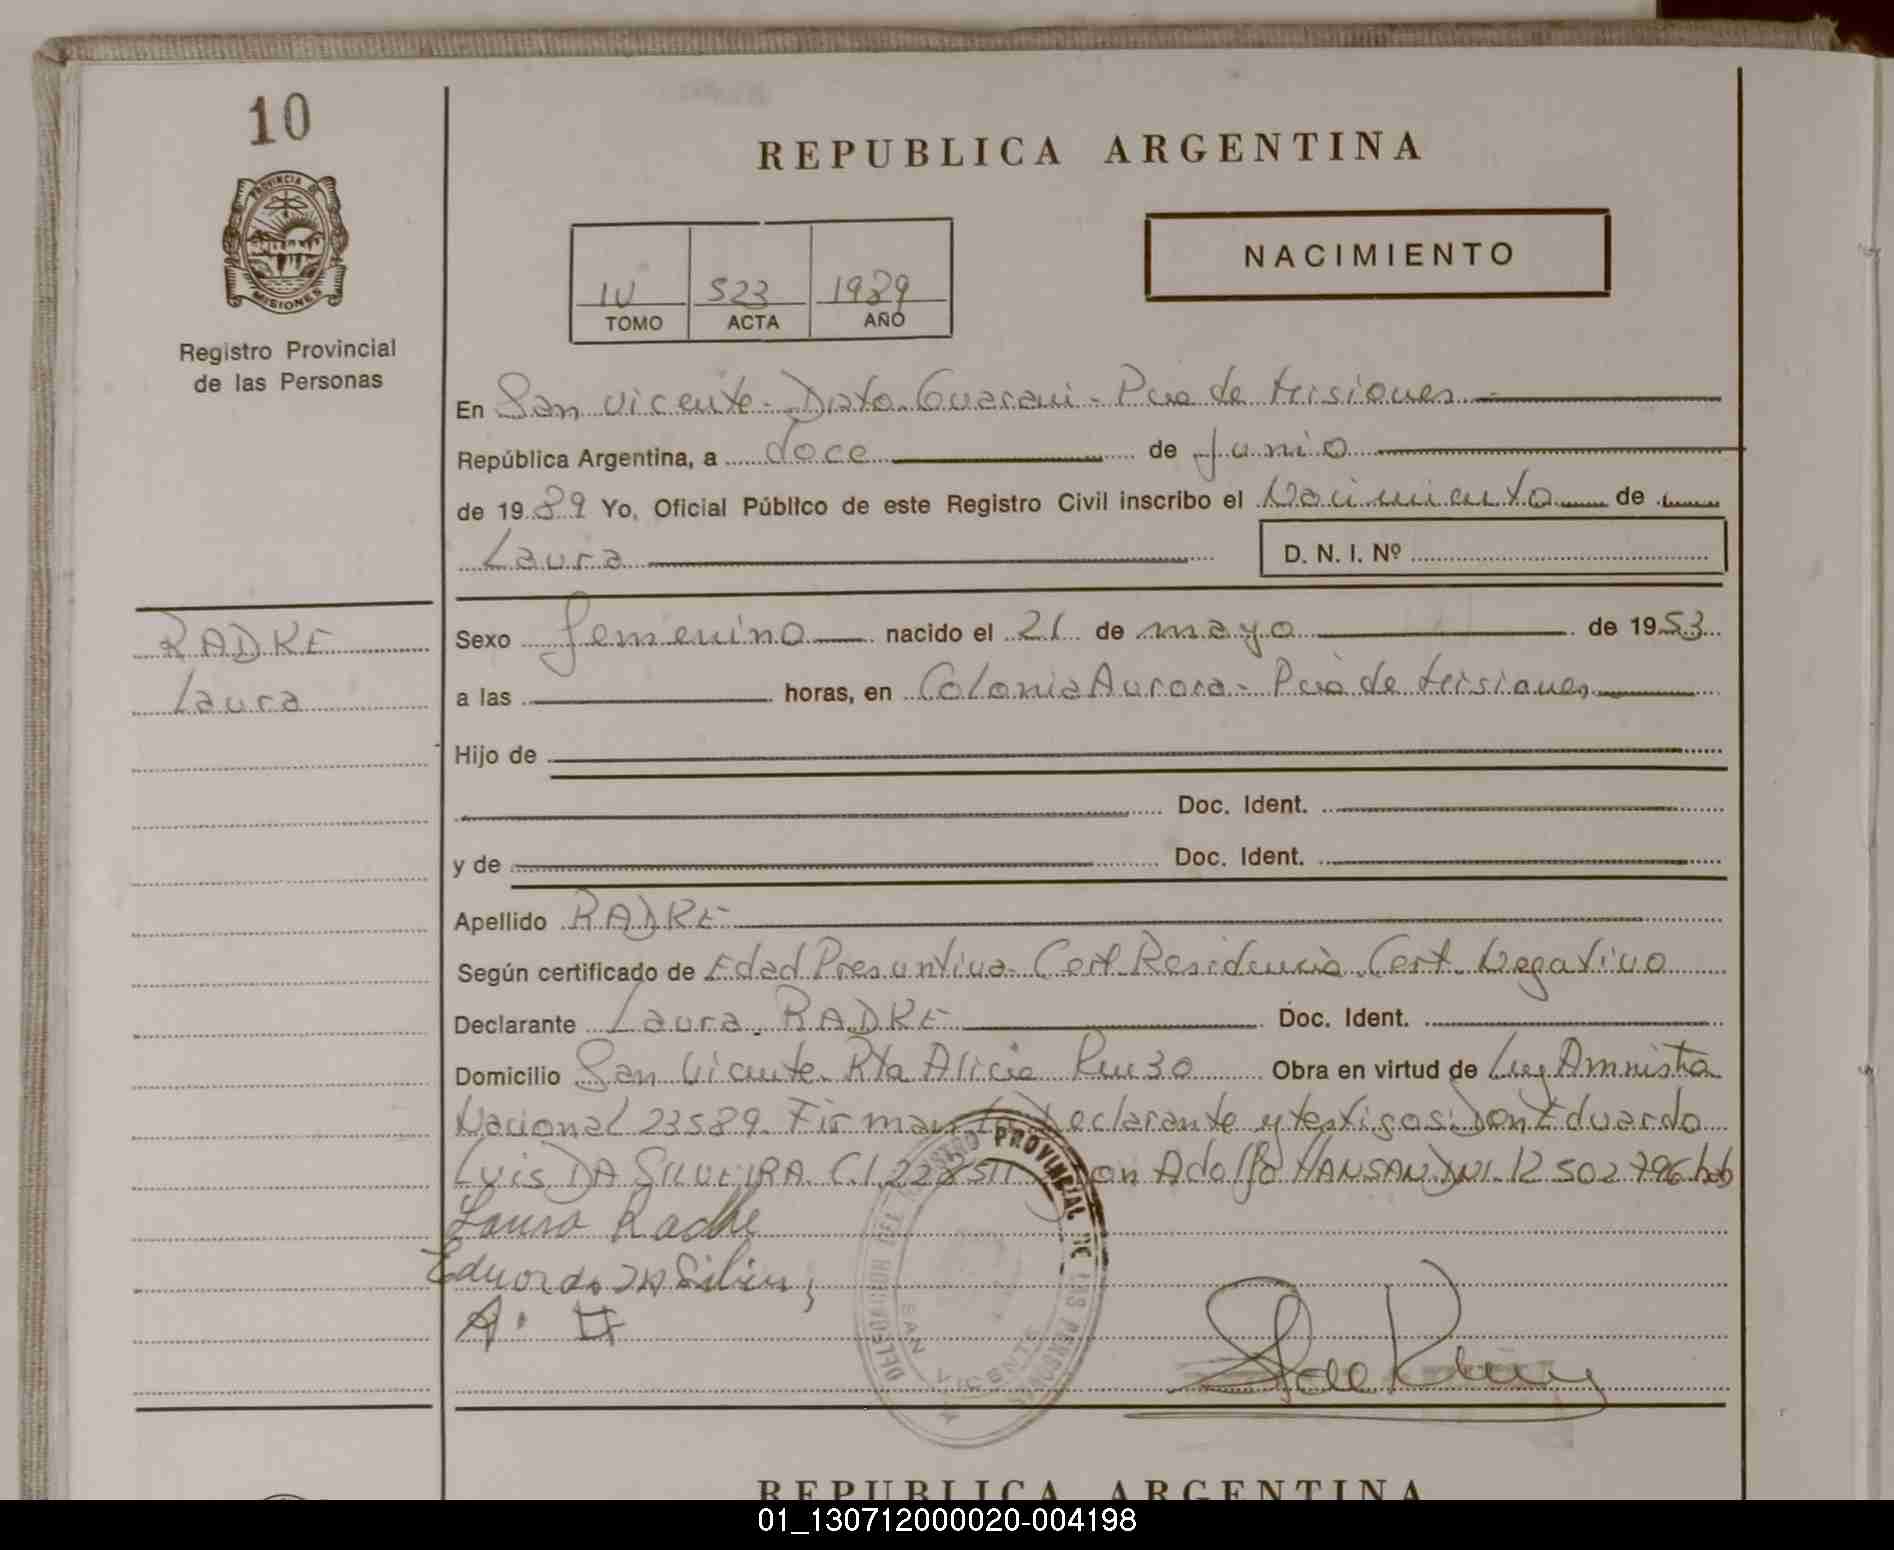 10
REPUBLICA ARGENTINA
PROVINCIA DE
MISIONES
Registro Provincial
de las Personas
IV 523 1989
TOMO ACTA AÑO
NACIMIENTO
En San Vicente - Dpto. Guarani - Pcia de Misiones
República Argentina, a doce de Junio
de 1989 Yo, Oficial Público de este Registro Civil inscribo el Nacimiento de
Laura D. N. I. Nº
RADKE
Laura
Sexo femenino nacido el 21 de mayo de 1953
a las horas, en Colonia Aurora - Pcia de Misiones
Hijo de
Doc. Ident.
y de Doc. Ident.
Apellido RADKE
Según certificado de Edad Presuntiva - Cert. Residencia. Cert. Negativo
Declarante Laura RADKE Doc. Ident.
Domicilio San Vicente Rta Alicia Obra en virtud de Ley Amnistia
Nacional 23589. Firman Declarante y testigos: Don Eduardo
Luis DA SILVEIRA C.I. 228511 Don Adolfo HANSAN DNI. 12 502 796
Laura Radke
Eduardo Da
A. H
DELEGACION DEL REGISTRO PROVINCIAL DE LAS PERSONAS
SAN VICENTE
REPUBLICA ARGENTINA
01_130712000020-004198